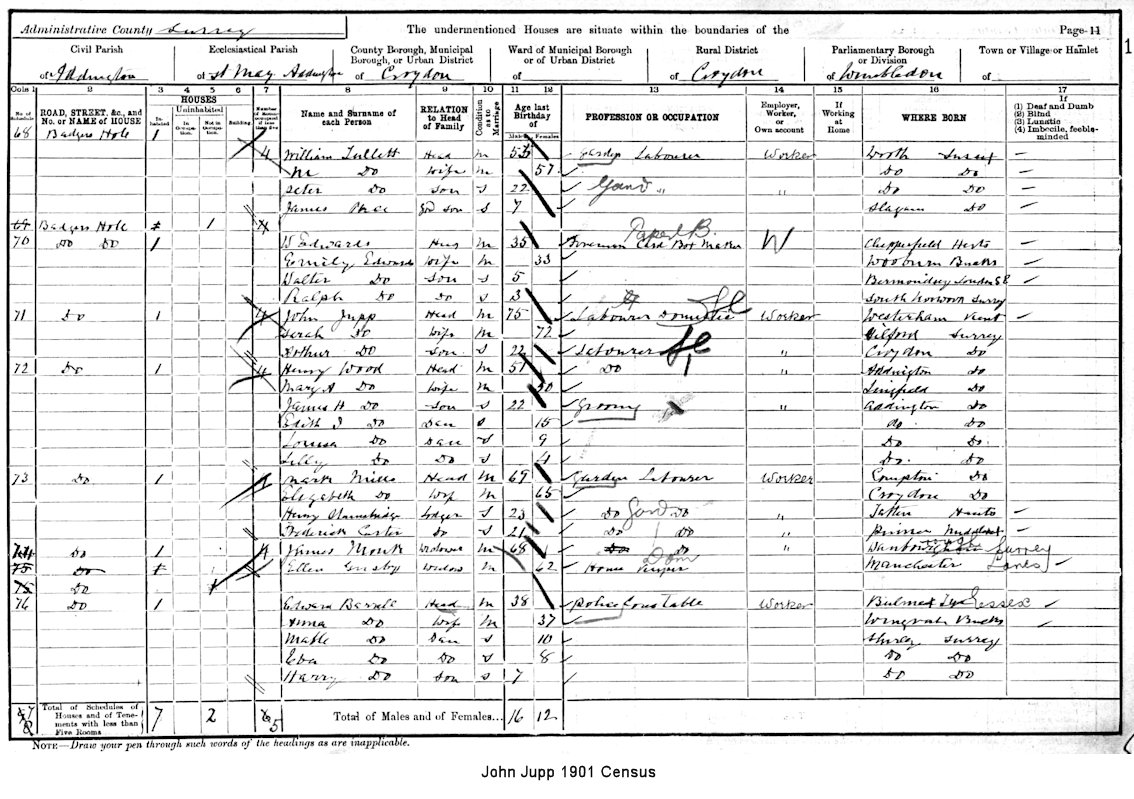 Administrative County Surrey The undermentioned Houses are situate within the boundaries of the Page 11
Civil Parish Ecclesiastical Parish County Borough, Municipal Borough, or Urban District Ward of Municipal Borough or of Urban District Rural District Parliamentary Borough or Division Town or Village or Hamlet
of Addington of St Mary Addington of Croydon of of Croydon of Wimbledon of
1
Cols 1 2 3 4 5 6 7 8 9 10 11 12 13 14 15 16 17
No. of Schedule ROAD, STREET, &c., and No. or NAME of HOUSE HOUSES Inhabited Uninhabited In Occupation Not in Occupation Building Number of Rooms occupied if less than five Name and Surname of each Person RELATION to Head of Family Condition as to Marriage Age last Birthday of Males Females PROFESSION OR OCCUPATION Employer, Worker, or Own account If Working at Home WHERE BORN If (1) Deaf and Dumb (2) Blind (3) Lunatic (4) Imbecile, feeble-minded
68 Badgers Hole 1
4 William Tullett Head M 55 Garden Labourer Worker Worth Sussex
M Do Wife M 57 Do Do
Peter Do Son S 22 Gard " " Do Do
James Grd Son S 7 Slaugham Do
69 Badgers Hole 1
70 Do Do 1 W Edwards Head M 35 Foreman Card Box Maker W Chipperfield Herts
Paper B.
Emily Edwards Wife M 33 Wooburn Bucks
Walter Do Son S 5 Bermondsey London SE
Ralph Do Do S 3 South Norwood Surrey
71 Do 1 4 John Jupp Head M 75 Labourer Domestic Worker Westerham Kent
Sarah Do Wife M 72 Surrey
Arthur Do Son S 22 Labourer " Croydon Do
72 Do 1 4 Henry Wood Head M 51 Do " Addington Do
Mary A Do Wife M 50 Lingfield Do
James H Do Son S 22 Groom " Addington Do
Edith J Do Dau S 15 Do Do
Louisa Do Dau S 9 Do Do
Lilly Do Do S 4 Do Do
73 Do 1 Mark Mills Head M 69 Garden Labourer Worker Compton Do
Elizabeth Do Wife M 65 Croydon Do
Henry Lodger S 23 Do Gard Do " Hants
Frederick Carter Do S 21 Do Do " Pinner Middlesex
74 Do 1 4 James Monk Widower M 68 Do Do " Surrey
75 Do Ellen Widow M 62 House Keeper Dom Manchester Lancs
75 Do
76 Do 1 Edward Head M 38 Police Constable Worker Bulmer Essex
Anna Do Wife M 37 Wingrave Bucks
Mable Do Dau S 10 Shirley Surrey
Eva Do Do S 8 Do Do
Harry Do Son S 7 Do Do
8 Total of Schedules of Houses and of Tenements with less than Five Rooms 7 2 5 Total of Males and of Females... 16 12
NOTE—Draw your pen through such words of the headings as are inapplicable.
John Jupp 1901 Census